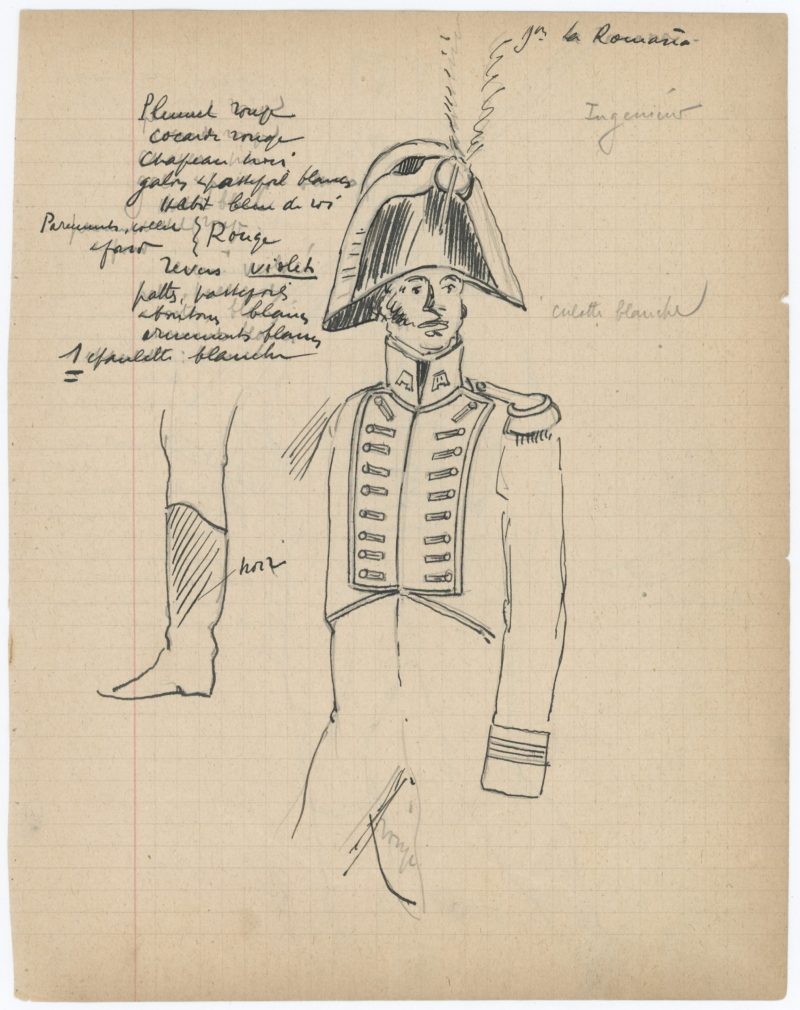 gn la Romaña
Ingeniero
Plumet rouge
cocarde rouge
Chapeau noir
galon passepoil blancs
Habit bleu de roi
Parements, collet } Rouge
revers violets
pattes, passepoils
boutons blancs
ornements blancs
1 epaulette blanche
culotte blanche
noir
rouge